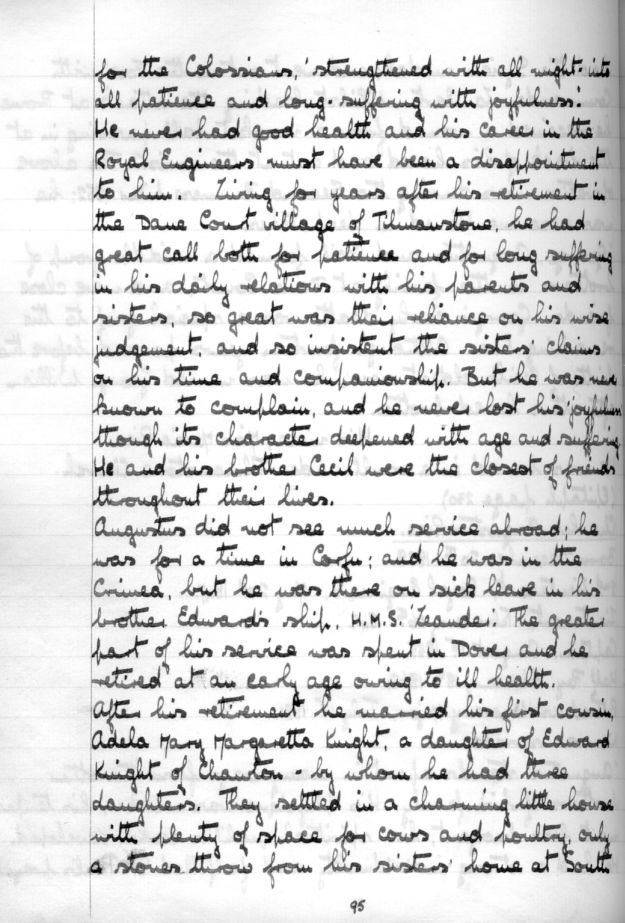 for the Colossians, 'strengthened with all might into
all patience and long-suffering with joyfulness'.
He never had good health and his career in the
Royal Engineers must have been a disappointment
to him. Living for years after his retirement in
the Dane Court village of Tilmanstone, he had
great call both for patience and for long suffering
in his daily relations with his parents and
sisters, so great was their reliance on his wise
judgement, and so insistent the sisters' claims
on his time and companionship. But he was never
known to complain, and he never lost his 'joyfulness'
though its character deepened with age and suffering.
He and his brother Cecil were the closest of friends
throughout their lives.
Augustus did not see much service abroad; he
was for a time in Corfu; and he was in the
Crimea, but he was there on sick leave in his
brother Edward's ship, H.M.S. 'Leander'. The greater
part of his service was spent in Dover and he
retired at an early age owing to ill health.
After his retirement he married his first cousin,
Adela Mary Margaretta Knight, a daughter of Edward
Knight of Chawton - by whom he had three
daughters. They settled in a charming little house
with plenty of space for cows, and poultry, only
a stones throw from his sisters' home at South
95